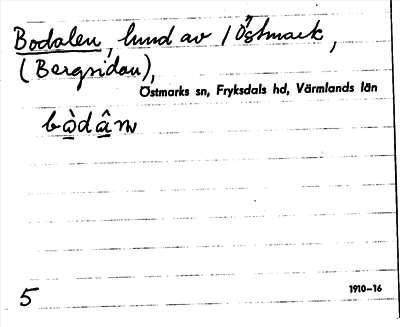 Bodalen, hund av 1 Östmark,
(Bergsidan),
Östmarks sn, Fryksdals hd, Värmlands län
bòdân
5
1910–16